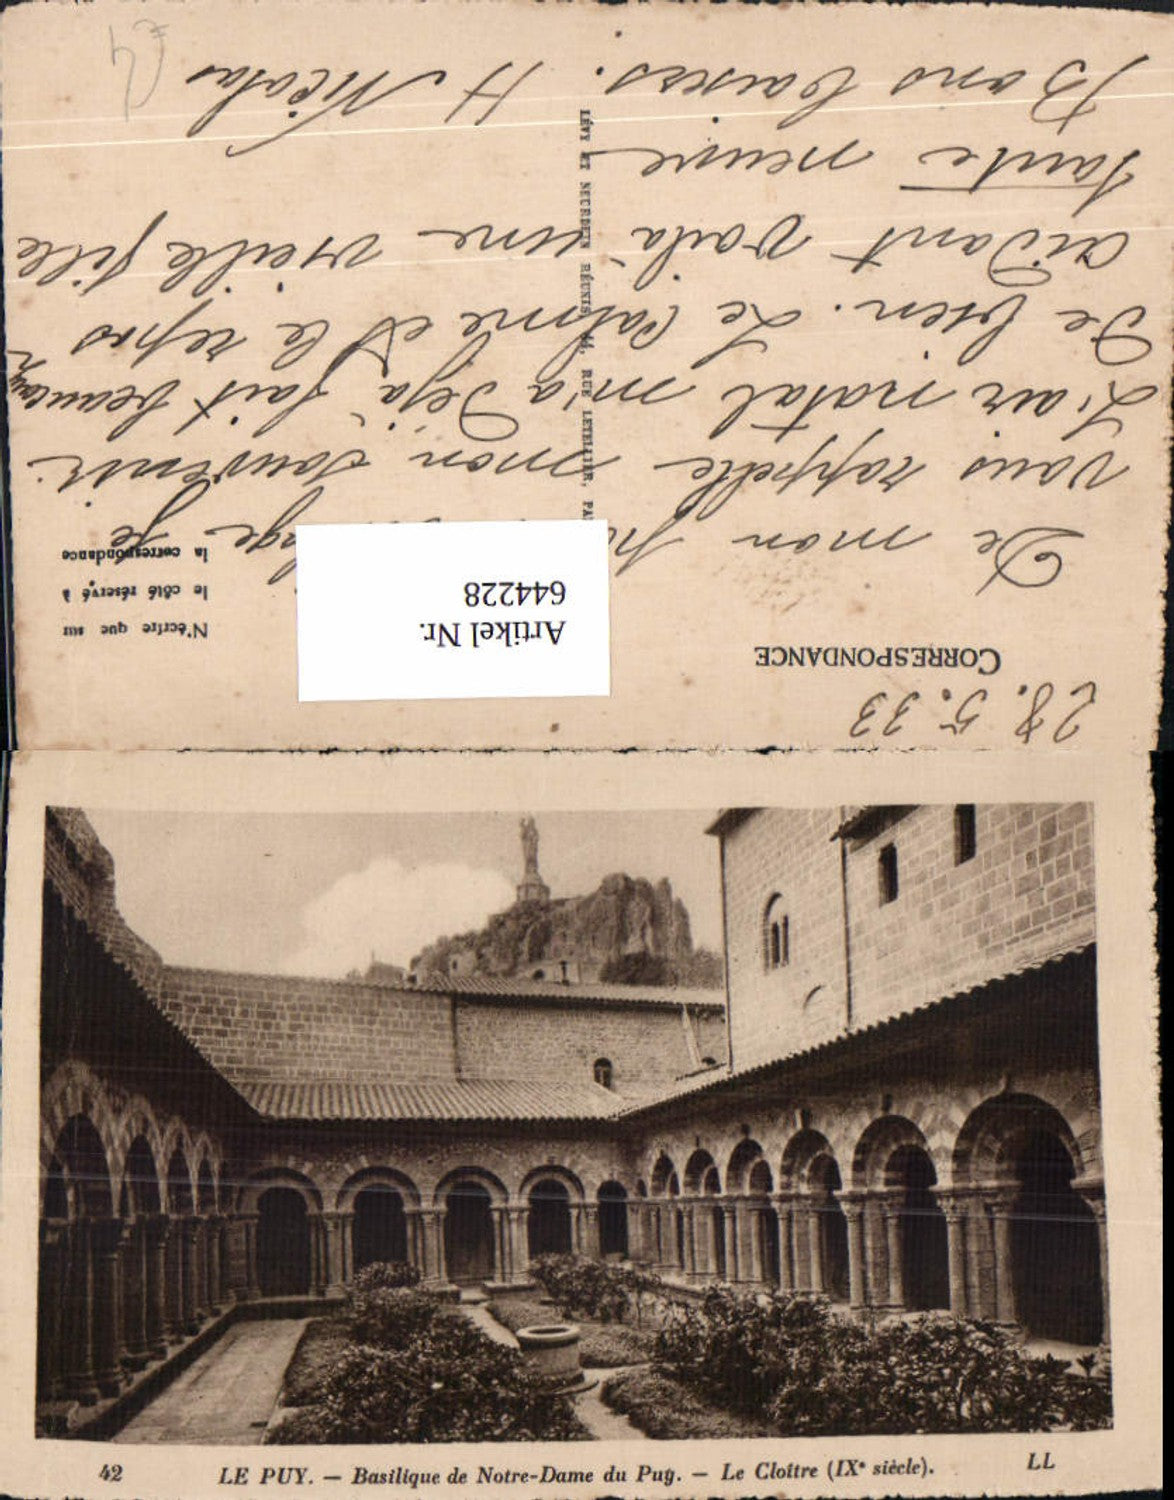 28.5.33
CORRESPONDANCE
N'écrire que sur
le côté réservé à
la correspondance
Artikel Nr.
644228
De mon je
vous rappelle mon souvenir.
L'air natal m'a déjà fait beaucoup
de bien. Le calme et le repos
aidant voilà une vieille fille
toute neuve
Bons baisers. H Nicolas
LÉVY ET NEURDEIN RÉUNIS, 44, RUE LETELLIER, PA
42 LE PUY. — Basilique de Notre-Dame du Puy. — Le Cloître (IXe siècle). LL